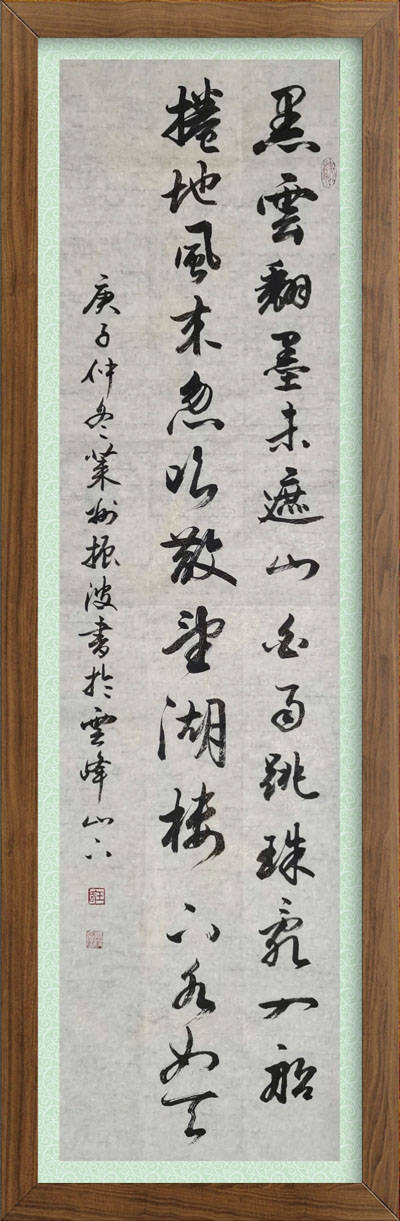 黑雲翻墨未遮山白雨跳珠亂入船
捲地風來忽吹散望湖樓下水如天
庚子仲冬萊州振波書於雲峰山下